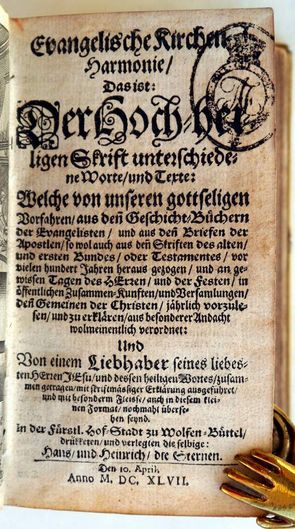 Evangelische Kirchen
Harmonie/
Das ist:
Der Hoch-hei
ligen Skrift unterschiede-
ne Worte/und Texte:
Welche von unseren gottseligen
Vorfahren/ aus den Geschicht-Büchern
der Evangelisten/ und aus den Briefen der
Apostlen/ so wol auch aus den Skriften des alten/
und ersten Bundes/ oder Testamentes/ vor
vielen hundert Jahren heraus gezogen/ und an ge-
wissen Tagen des HErren/ und der Festen/ in
öffentlichen Zusammen-Kunften/und Versamlungen/
den Gemeinen der Christen/ jährlich vorzule-
sen/ und zu erklären/ aus besonderer Andacht
wolmeinentlich verordnet:
Und
Von einem Liebhaber seines liebes-
ten HErren JEsu/ und dessen heiligen Wortes/ zusam-
men getragen/ mit skriftmässiger Erklärung ausgeführet/
und mit besonderm Fleisse/ auch in diesem klei-
nen Format/ nochmahl überse-
hen seynd.
In der Fürstl. Hof-Stadt zu Wolfen-Büttel/
drükketen/ und verlegten die selbige:
Hans/ und Heinrich/ die Sternen.
Den 10. April,
Anno M. DC. XLVII.